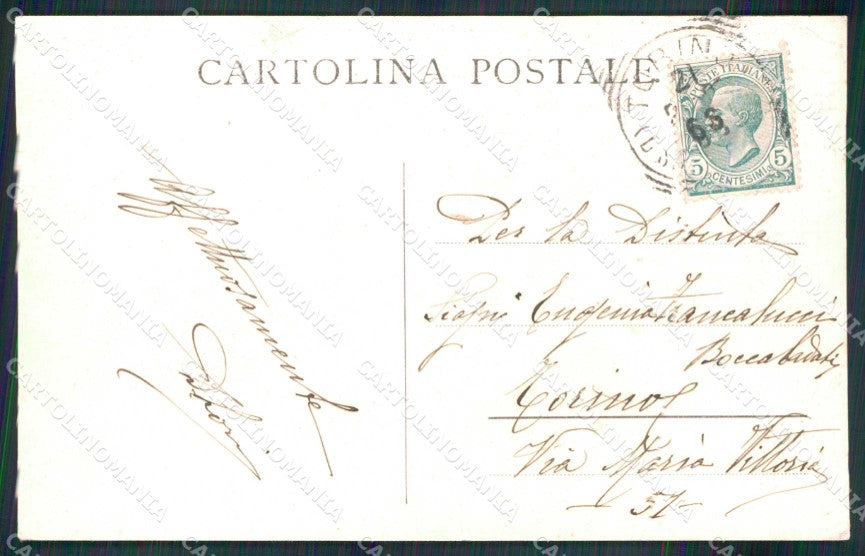 CARTOLINA POSTALE
TORINO
21
65
POSTE ITALIANE
5 5
CENTESIMI
Affettuosamente
Per la Distinta
Sigra Eugenia Francalucci
Boccabadati
Torino
Via Maria Vittoria
51
CARTOLINOMANIA